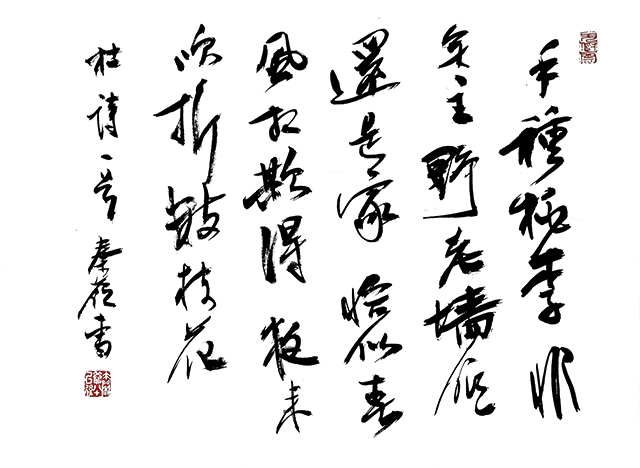 手種桃李非
無主野老墙低
還是家恰似春
風相欺得夜来
吹折數枝花
杜詩一首 秦嶺書